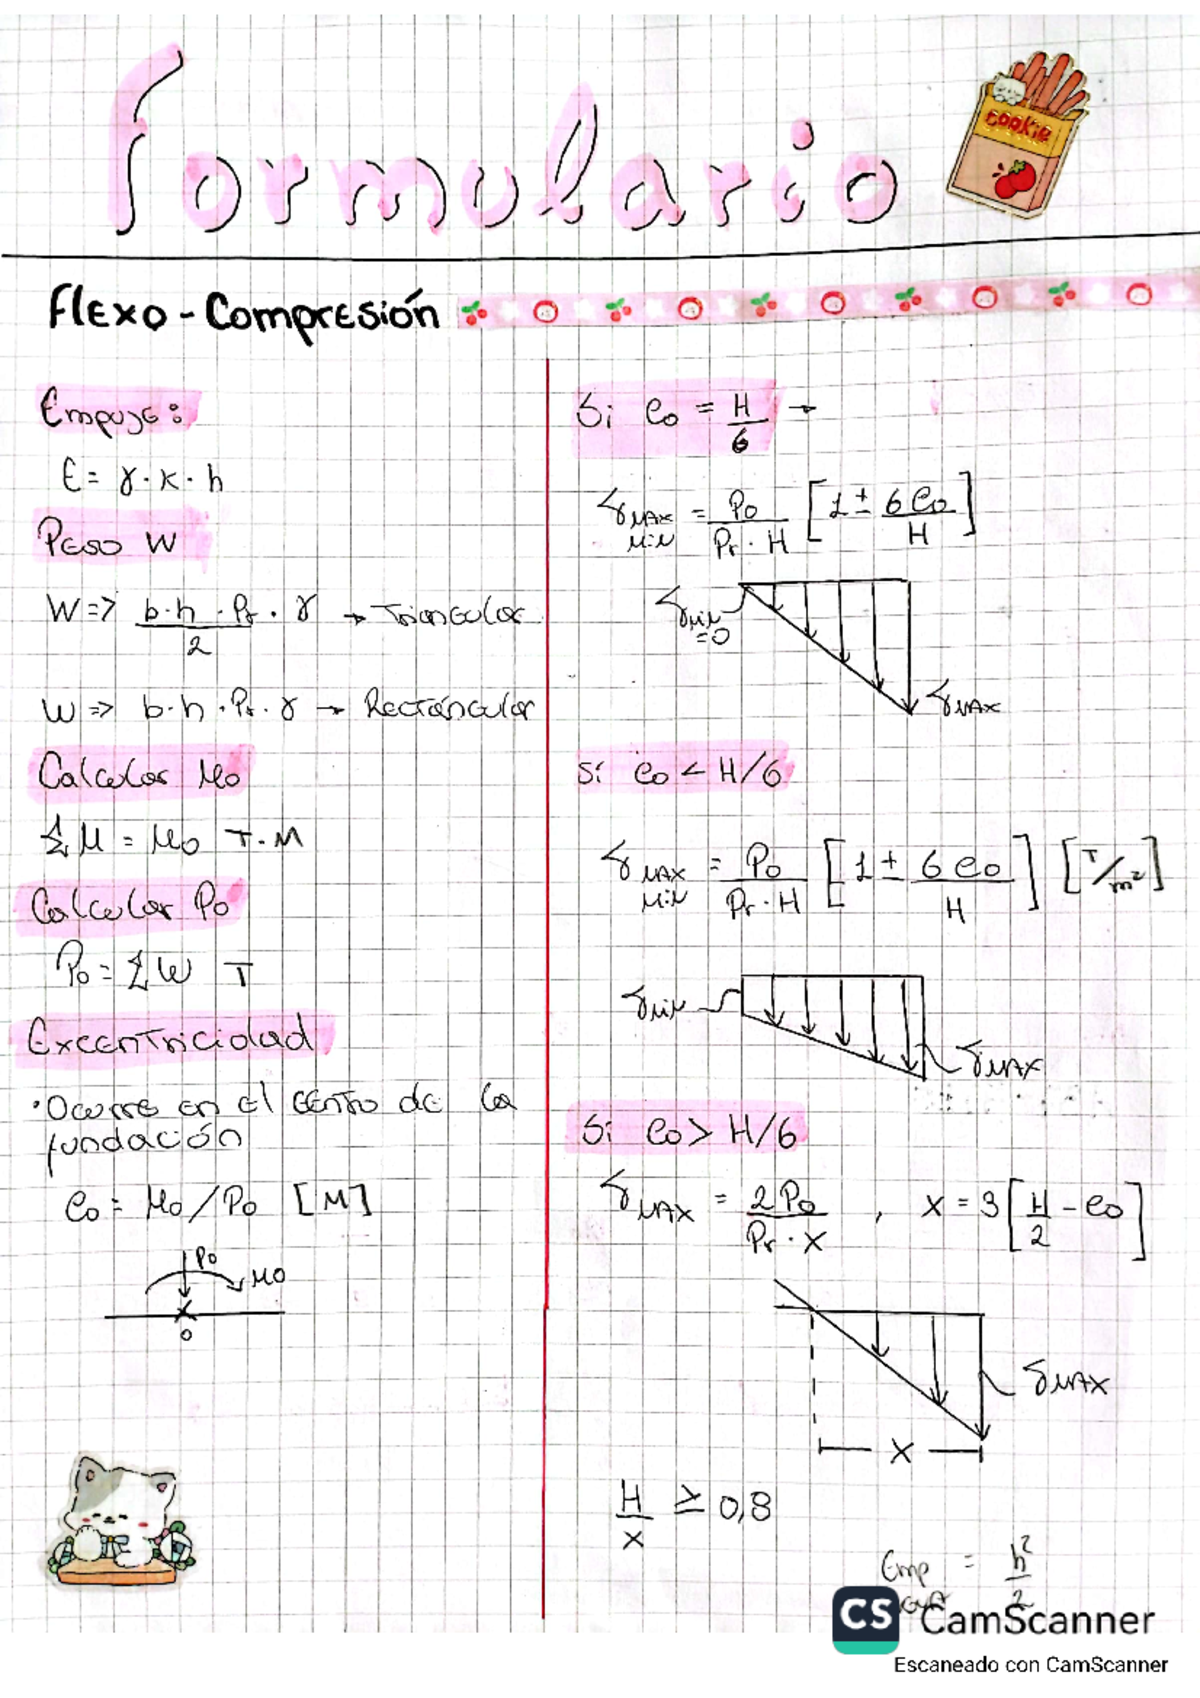 Formulario
cookie
Flexo - Compresión
Empuje:
E = γ · K · h
Peso W
W => b·h · Pr · γ / 2 → Triangular
W => b·h · Pr · γ → Rectángular
Calcular Mo
ΣM = Mo T·M
Calcular Po
Po = ΣW T
Excentricidad
• Ocurre en el centro de la
fundación
eo = Mo/Po [M]
Po
Mo
o
Si eo = H/6 →
σ MAX MiN = Po / Pr · H [1 ± 6 eo / H]
σ MiN = 0
σ MAX
Si eo < H/6
σ MAX MiN = Po / Pr · H [1 ± 6 eo / H] [T/m²]
σ MiN
σ MAX
Si eo > H/6
σ MAX = 2 Po / Pr · X , X = 3 [H/2 - eo]
σ MAX
X
H / x ≥ 0,8
Emp = h² / 2
CS CamScanner
Escaneado con CamScanner